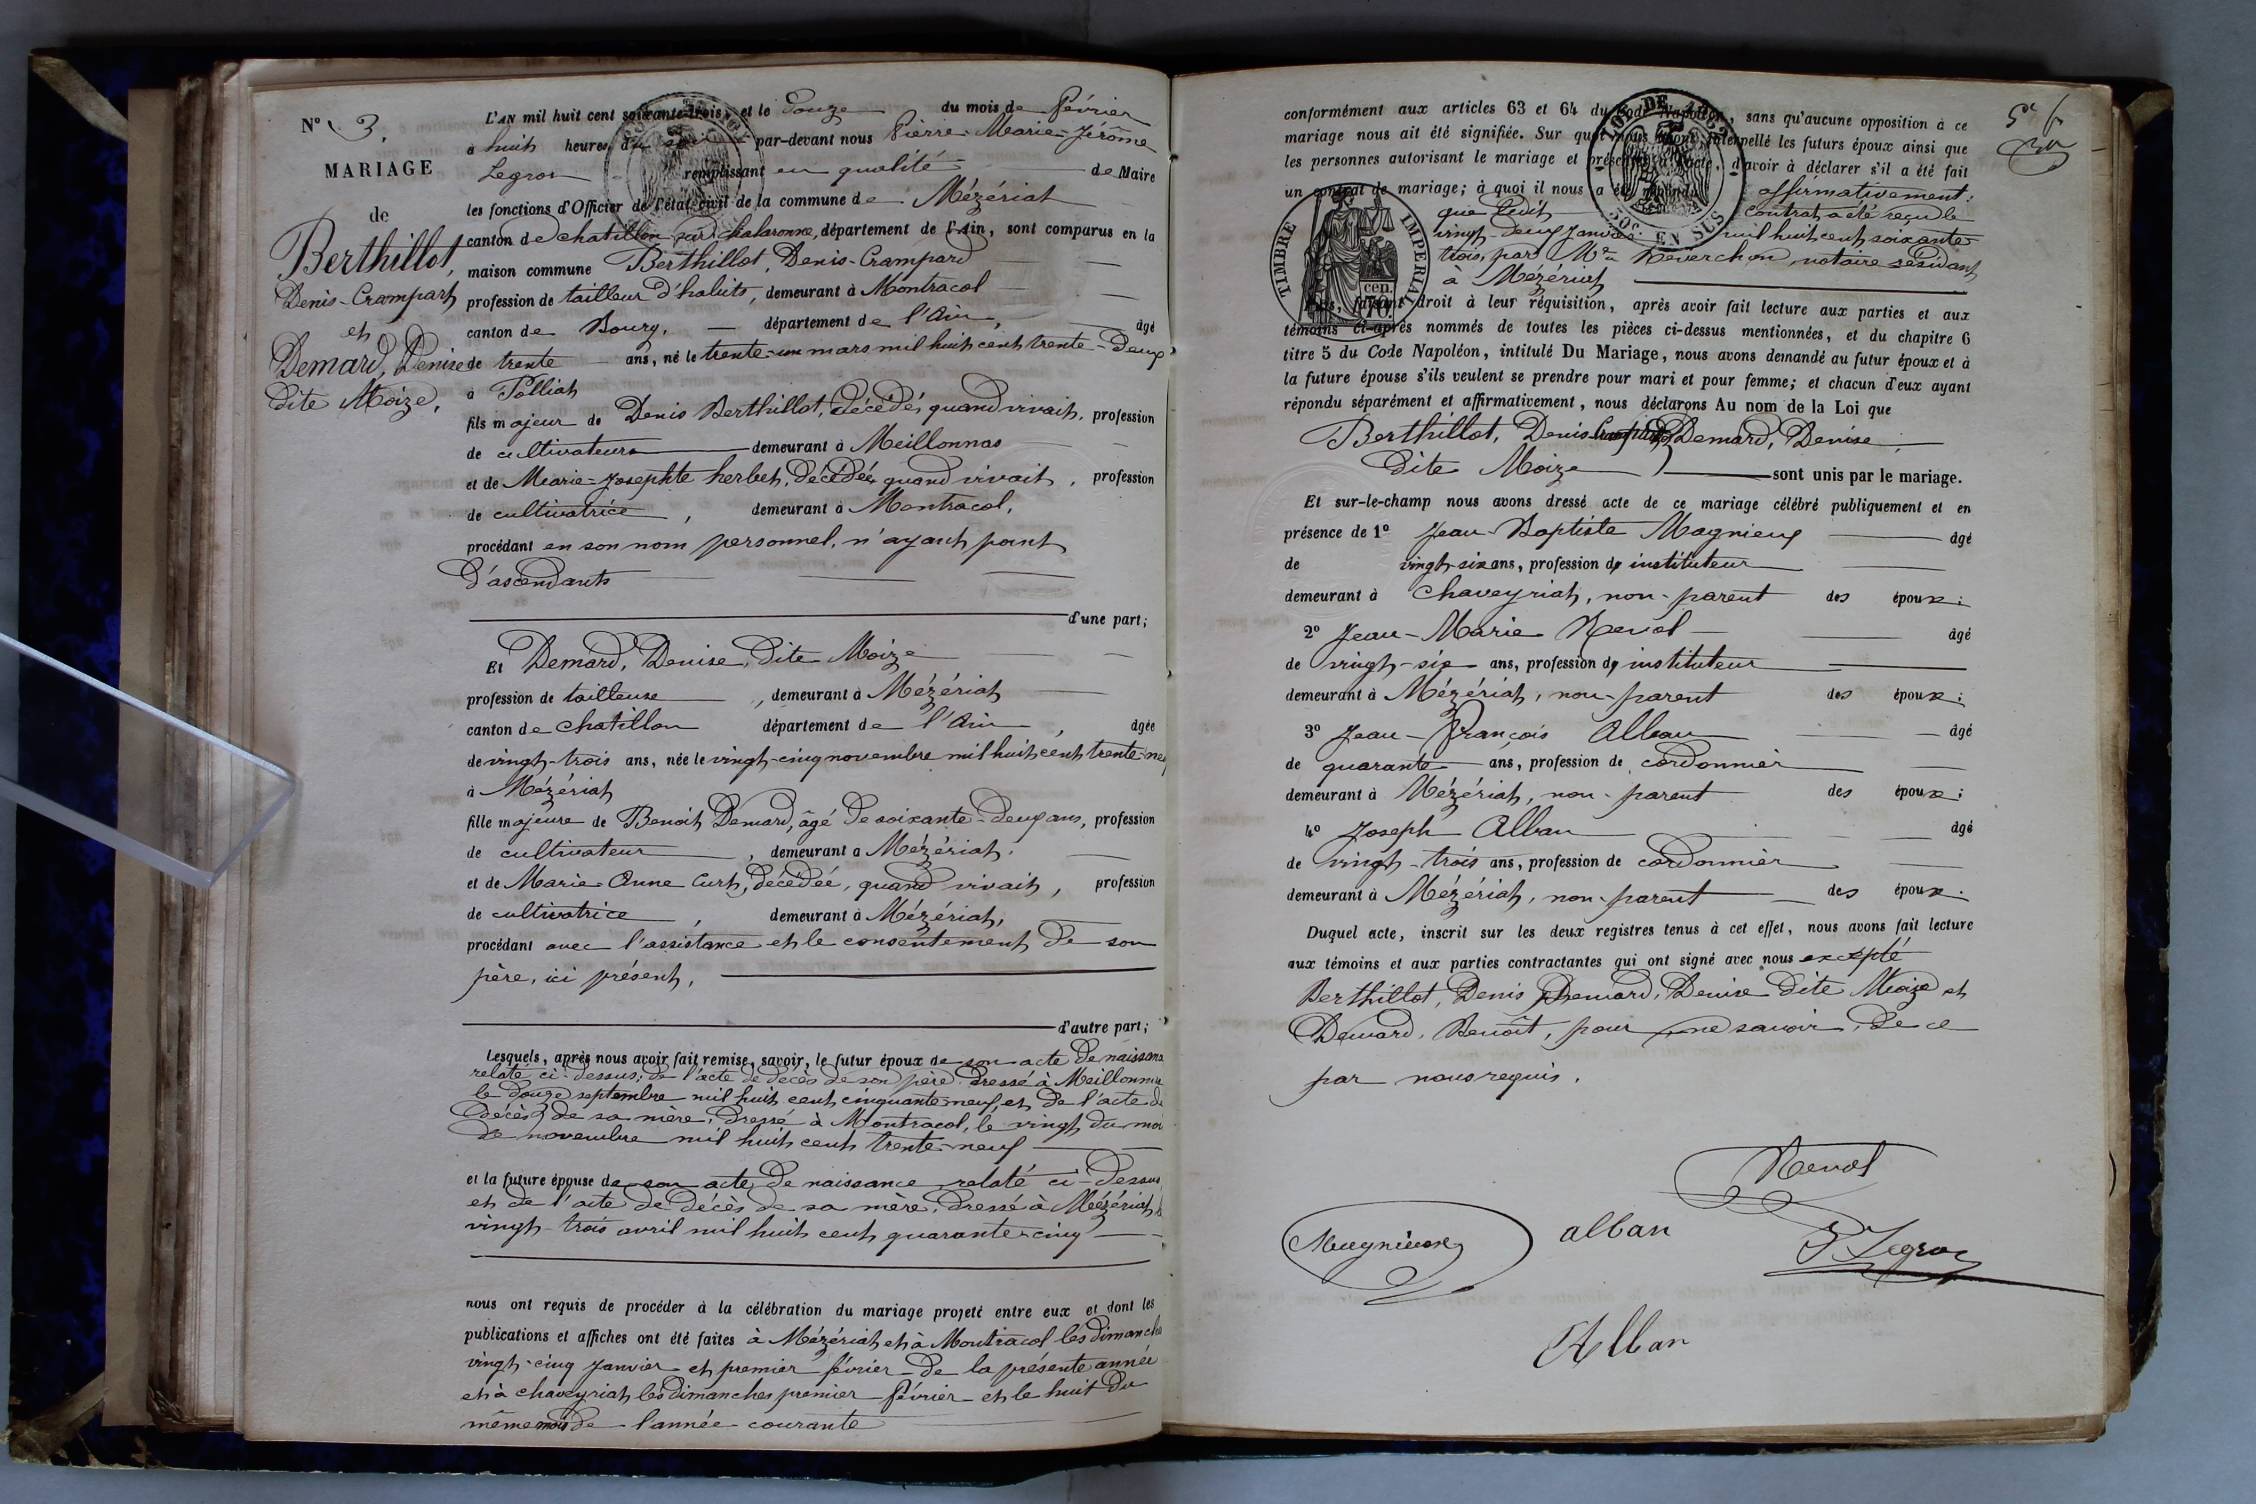 N° 3.
MARIAGE
de
Berthillot,
Denis-Crampart
et
Demard, Denise
dite Moize,
L'AN mil huit cent soixante-trois, et le Douze du mois de Février
à huit heures du soir par-devant nous Pierre-Marie-Jérôme
Legros remplissant en qualité de Maire
les fonctions d'Officier de l'état-civil de la commune de Mézériat
canton de chatillon sur chalaronne, département de l'Ain, sont comparus en la
maison commune Berthillot, Denis-Crampard
profession de tailleur d'habits, demeurant à Montracol
canton de Bourg, département de l'Ain, âgé
de trente ans, né le trente-un mars mil huit cent trente-deux
à Polliat
fils majeur de Denis Berthillot, décédé, quand vivait, profession
de cultivateur demeurant à Meillonnas
et de Marie-Josephte herbet, décédée, quand vivait, profession
de cultivatrice, demeurant à Montracol,
procédant en son nom personnel, n'ayant point
d'ascendants
d'une part;
Et Demard, Denise, dite Moize
profession de tailleuse, demeurant à Mézériat
canton de chatillon département de l'Ain, âgée
de vingt-trois ans, née le vingt-cinq novembre mil huit cent trente-neuf
à Mézériat
fille majeure de Benoit Demard, âgé de soixante-deux ans, profession
de cultivateur, demeurant à Mézériat.
et de Marie-Anne Curt, décédée, quand vivait, profession
de cultivatrice, demeurant à Mézériat,
procédant avec l'assistance et le consentement de son
père, ici présent,
d'autre part;
Lesquels, après nous avoir fait remise, savoir, le futur époux de son acte de naissance
relaté ci-dessus; de l'acte de décès de son père dressé à Meillonnas
le douze septembre mil huit cent cinquante-neuf, et de l'acte de
décès de sa mère, dressé à Montracol, le vingt du mois
de novembre mil huit cent trente-neuf
et la future épouse de son acte de naissance relaté ci-dessus
et de l'acte de décès de sa mère, dressé à Mézériat, le
vingt-trois avril mil huit cent quarante-cinq
nous ont requis de procéder à la célébration du mariage projeté entre eux et dont les
publications et affiches ont été faites à Mézériat et à Montracol les dimanches
vingt-cinq janvier et premier février de la présente année
et à chaveyriat les dimanches premier février et le huit du
même mois de l'année courante
conformément aux articles 63 et 64 du Code Napoléon, sans qu'aucune opposition à ce
mariage nous ait été signifiée. Sur quoi nous avons interpellé les futurs époux ainsi que
les personnes autorisant le mariage et présentes à l'acte, d'avoir à déclarer s'il a été fait
un contrat de mariage; à quoi il nous a été répondu affirmativement:
que ledit contrat a été reçu le
vingt-deux janvier mil huit cent soixante
trois, par Me Reverchon, notaire résidant
à Mézériat
Nous, faisant droit à leur réquisition, après avoir fait lecture aux parties et aux
témoins ci-après nommés de toutes les pièces ci-dessus mentionnées, et du chapitre 6
titre 5 du Code Napoléon, intitulé Du Mariage, nous avons demandé au futur époux et à
la future épouse s'ils veulent se prendre pour mari et pour femme; et chacun d'eux ayant
répondu séparément et affirmativement, nous déclarons Au nom de la Loi que
Berthillot, Denis Crampart et Demard, Denise,
dite Moize sont unis par le mariage.
Et sur-le-champ nous avons dressé acte de ce mariage célébré publiquement et en
présence de 1° Jean-Baptiste Magnieux âgé
de vingt-six ans, profession d'instituteur
demeurant à Chaveyriat, non-parent des époux;
2° Jean-Marie Revol âgé
de vingt-six ans, profession d'instituteur
demeurant à Mézériat, non-parent des époux;
3° Jean-François Alban âgé
de quarante ans, profession de cordonnier
demeurant à Mézériat, non-parent des époux;
4° Joseph Alban âgé
de vingt-trois ans, profession de cordonnier
demeurant à Mézériat, non-parent des époux.
Duquel acte, inscrit sur les deux registres tenus à cet effet, nous avons fait lecture
aux témoins et aux parties contractantes qui ont signé avec nous excepté
Berthillot, Denis, Demard, Denise dite Moize et
Demard, Benoît, pour ne savoir, de ce
par nous requis.
Revol
Magnieux
alban
Legros
Alban
TIMBRE IMPERIAL
70 cen.
50c. EN SUS